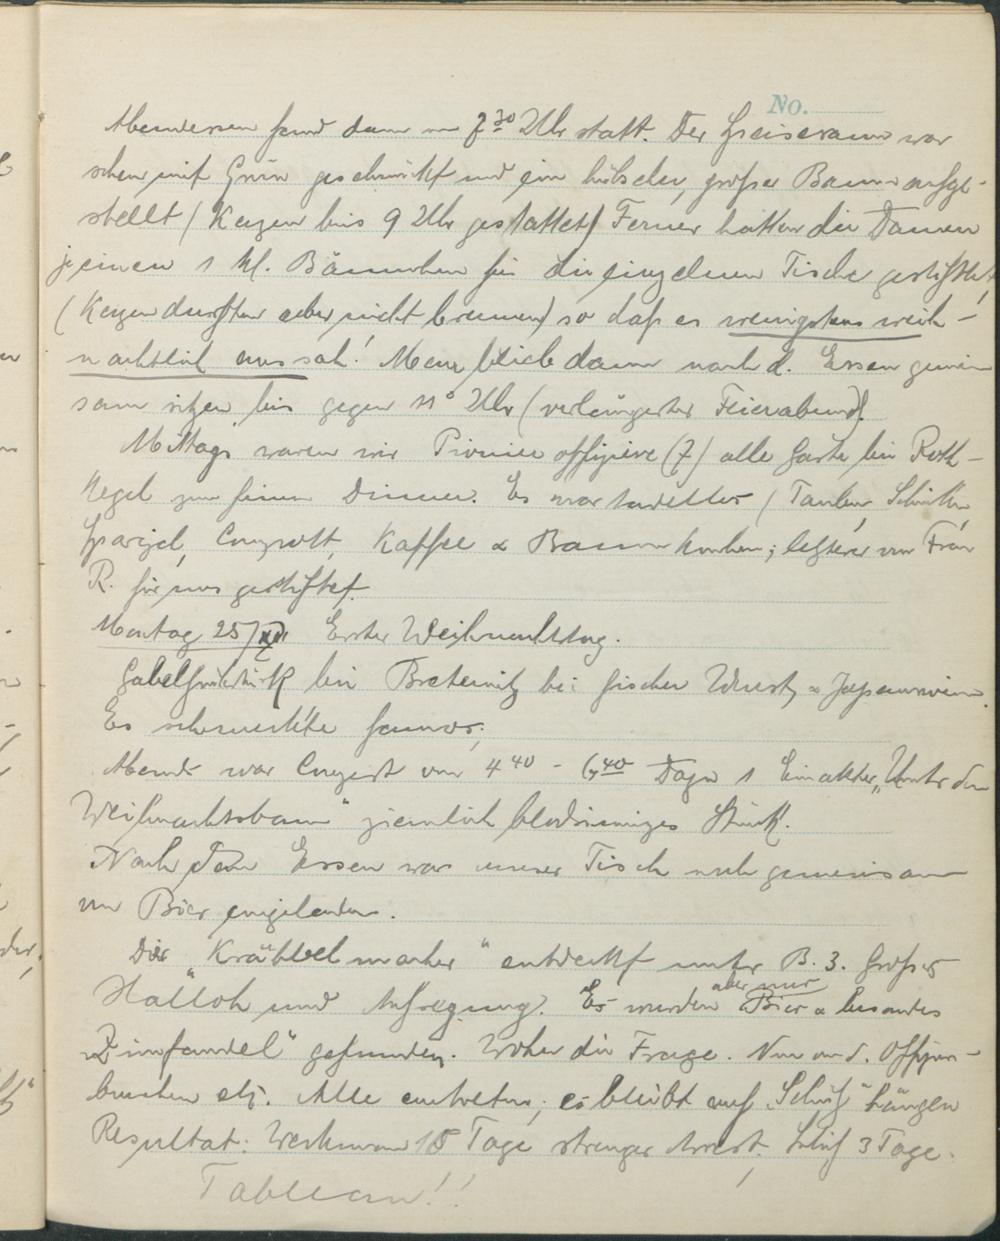 No.
Abendessen fand dann um 7³⁰ Uhr statt. Der Speiseraum war
schon mit Grün geschmückt und ein hübscher, großer Baum aufge-
stellt (Kerzen bis 9 Uhr gestattet) Ferner hatten die Damen
je einen 1 kl. Bäumchen für die einzelnen Tische gestiftet,
(Kerzen durften aber nicht brennen) so daß es wenigstens weih-
nachtlich aussah! Man blieb dann nach d. Essen gemein
sam sitzen bis gegen 11° Uhr (verlängerter Feierabend).
Mittags waren wir Pionier offiziere (7) alle Gäste bei Roth-
kegel zum feinen Dinner. Es war tadellos (Tauben, Schinken,
Spargel, Compott, Kaffee & Baumkuchen; letzterer von Frau
R. für uns gestiftet.
Montag 25/XII Erster Weihnachtstag.
Gabelfrühstück bei frischer Wurst & Japanwein.
Es schmeckte famos;
Abends war Conzert von 4 40 - 6 40 Dazu 1 Einakter „Unter dem
Weihnachtsbaum" ziemlich blödsinniges Stück.
Nach dem Essen war unser Tisch noch gemeinsam
um Bier eingeladen.
Die "Kräbbelmacher" entdeckt unter B. 3. Großes
Halloh und Aufregung. Es wurden aber nur Bier & besonders
Zinfandel" gefunden. Woher die Frage. Nun an d. Offizier-
burschen etz. Alle antreten; es bleibt auf hängen
Resultat: 18 Tage strenger Arrest, 3 Tage.
Tableau!!